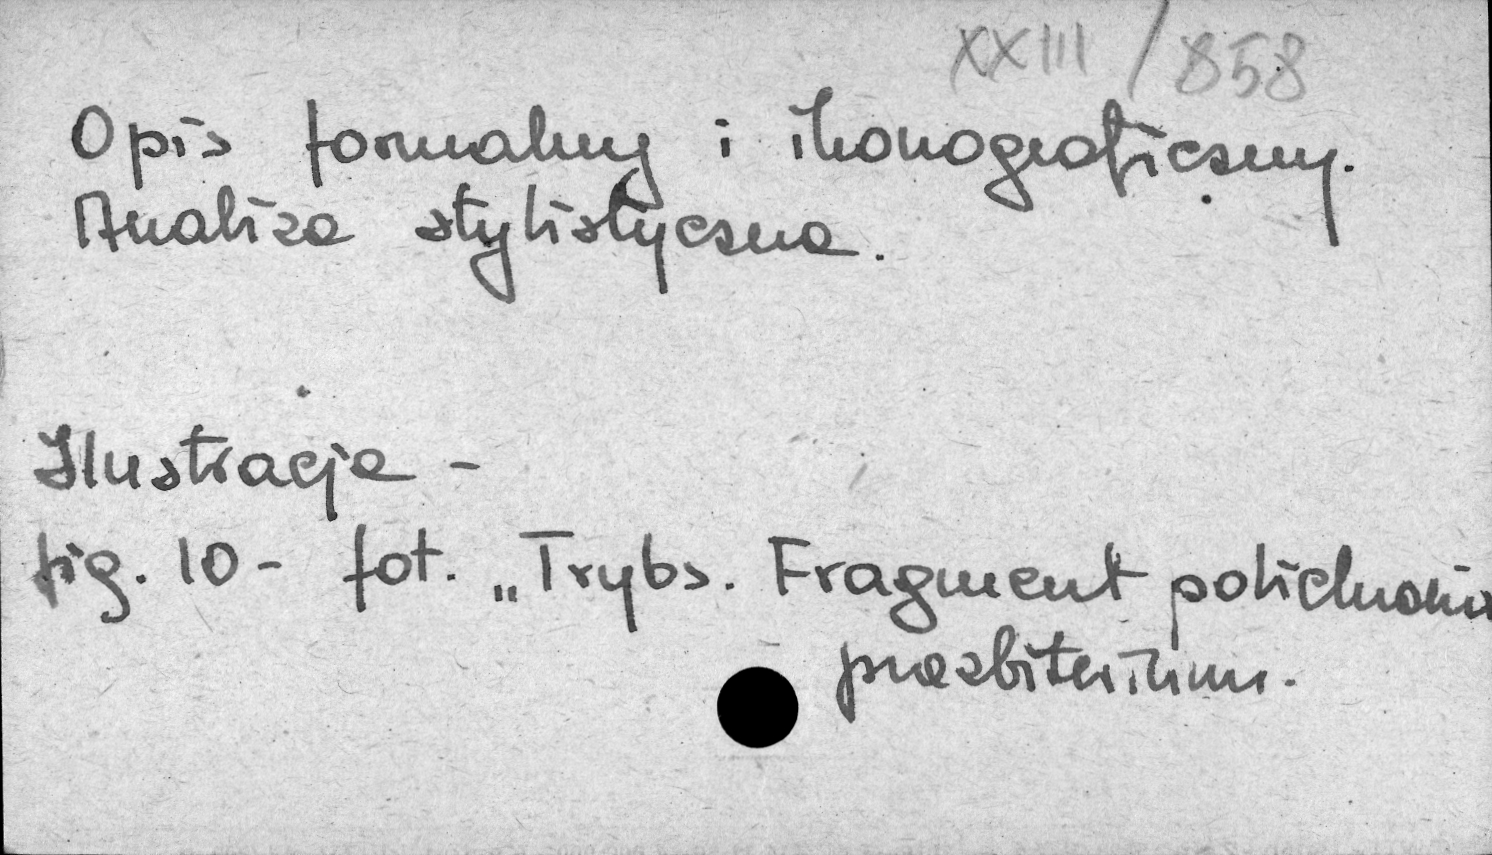 XXIII / 858
Opis formalny i ikonograficzny.
Analiza stylistyczna.
Ilustracja -
fig. 10 - fot. „Trybs. Fragment polichromii
prezbiterium.